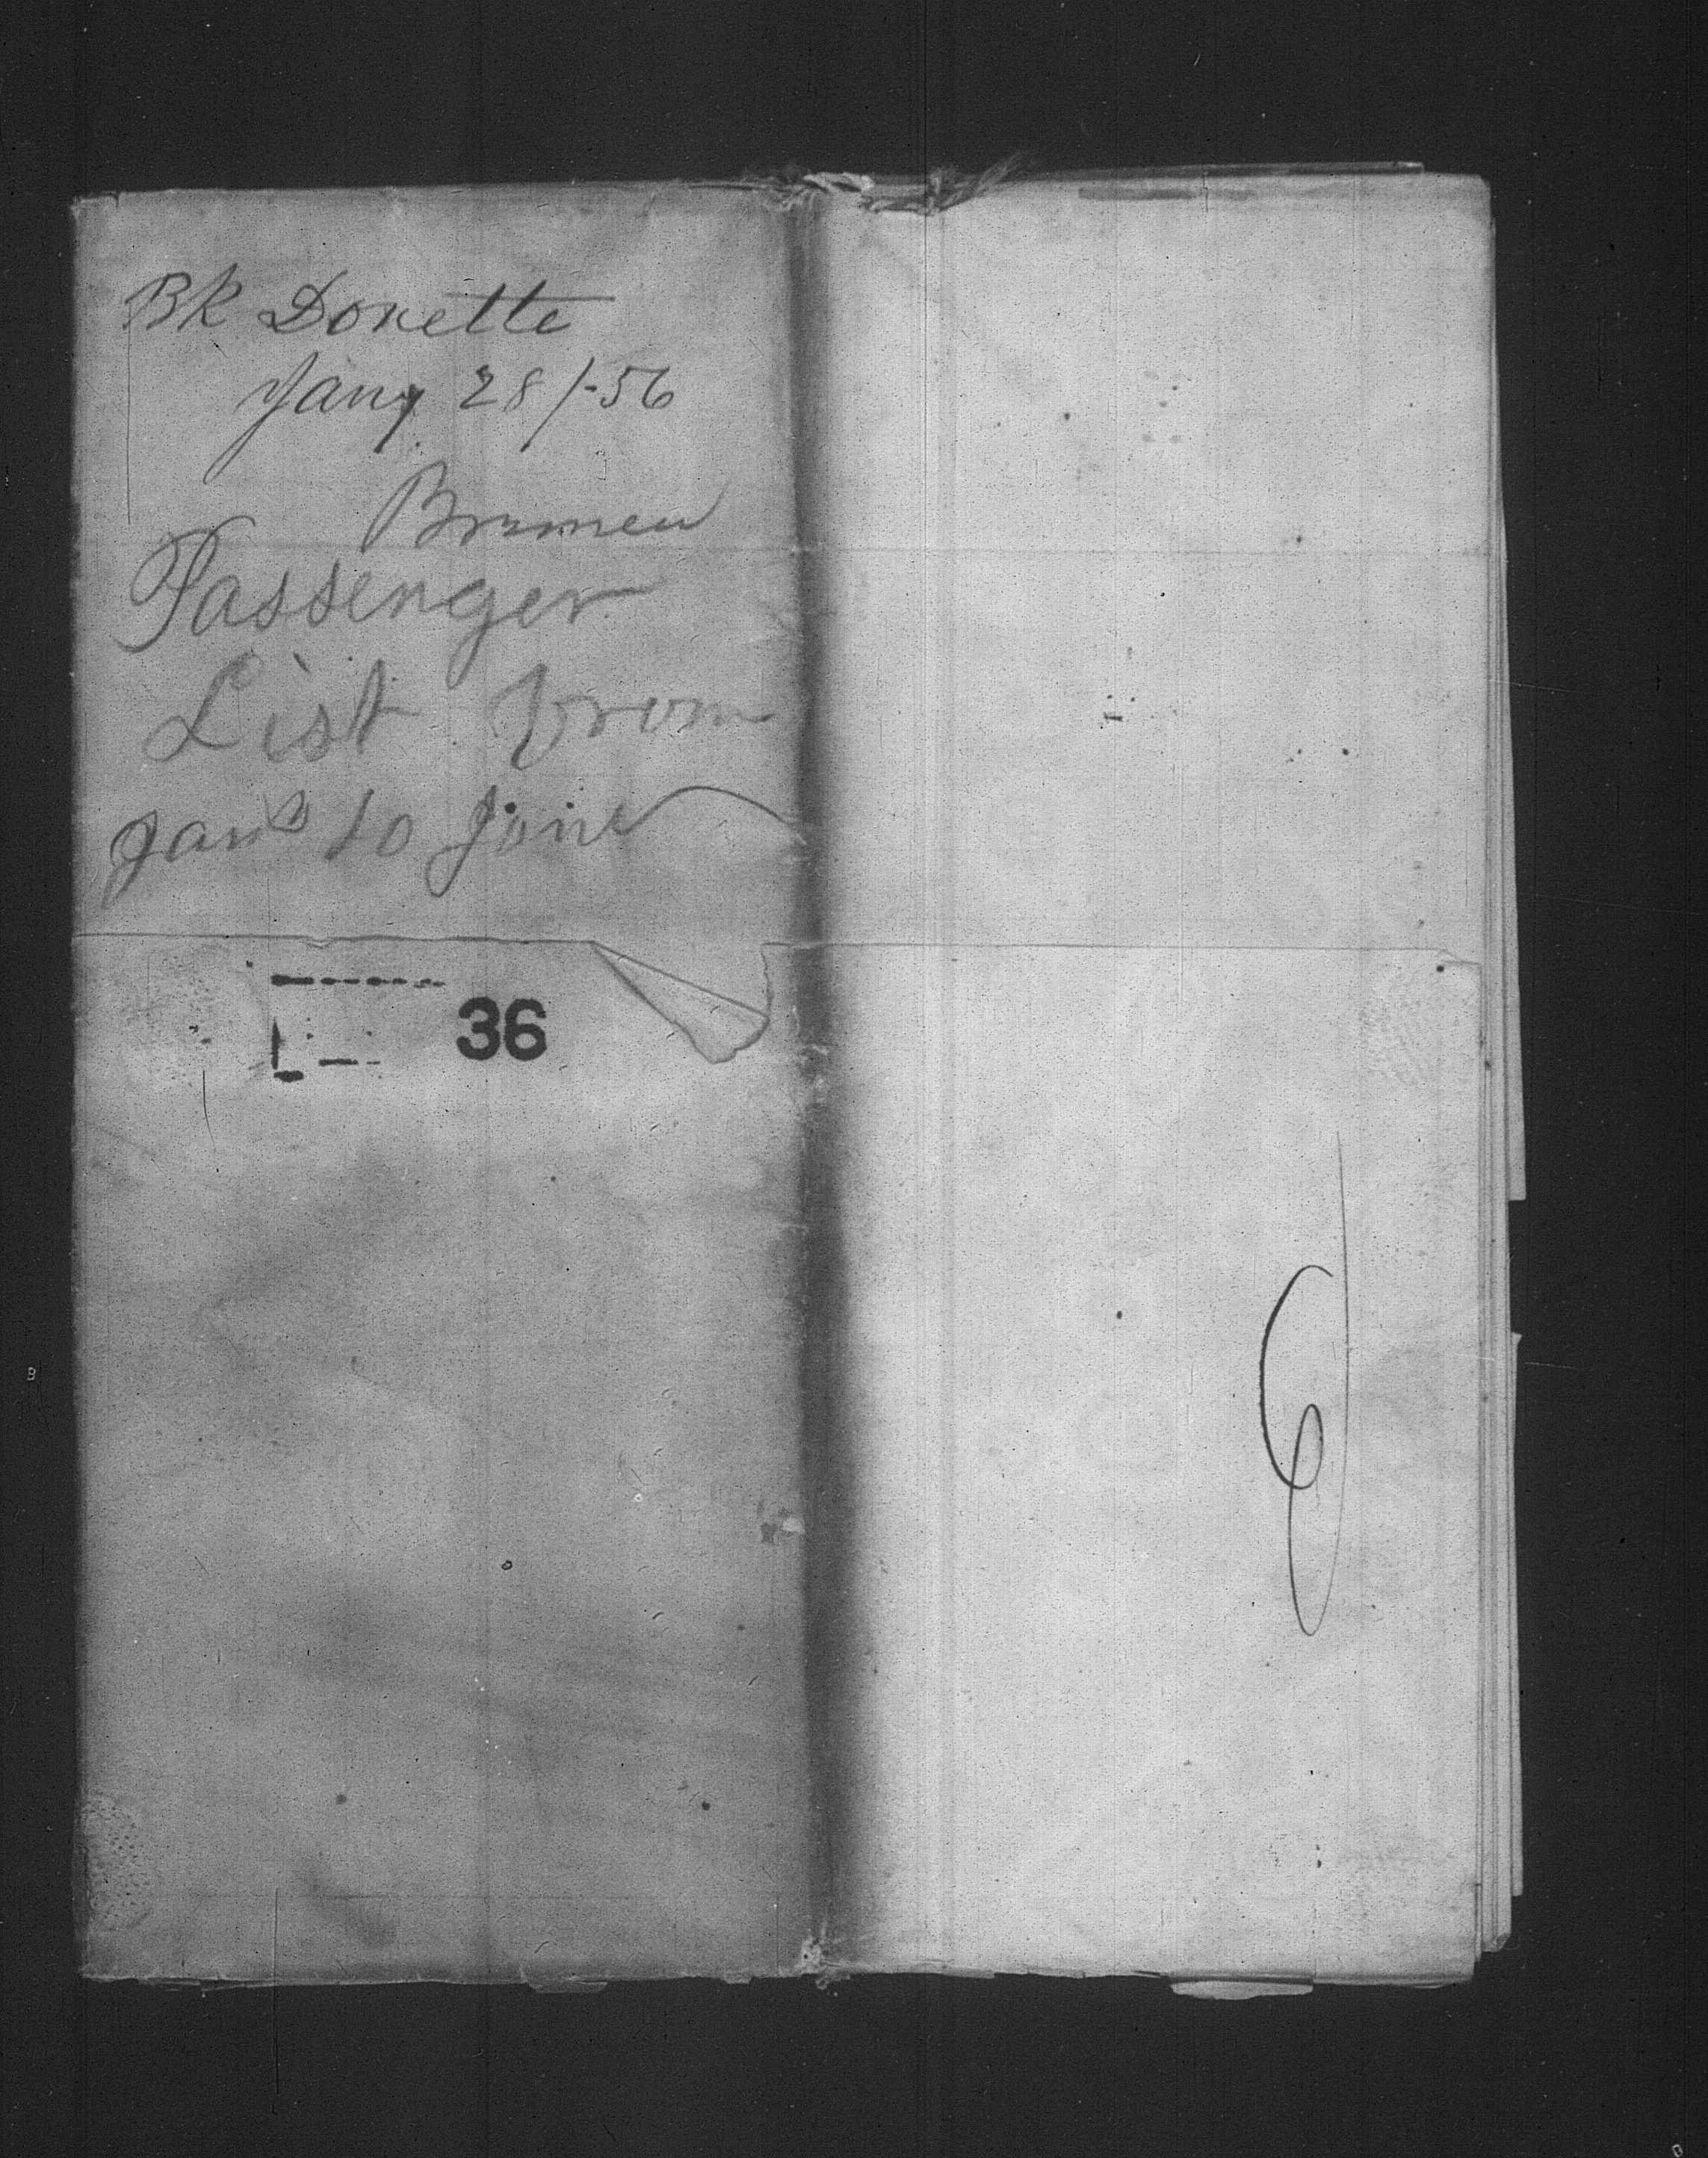 Bk Donette
Jany 28/-56
Bremen
Passenger
List from
Jan to June
36
6